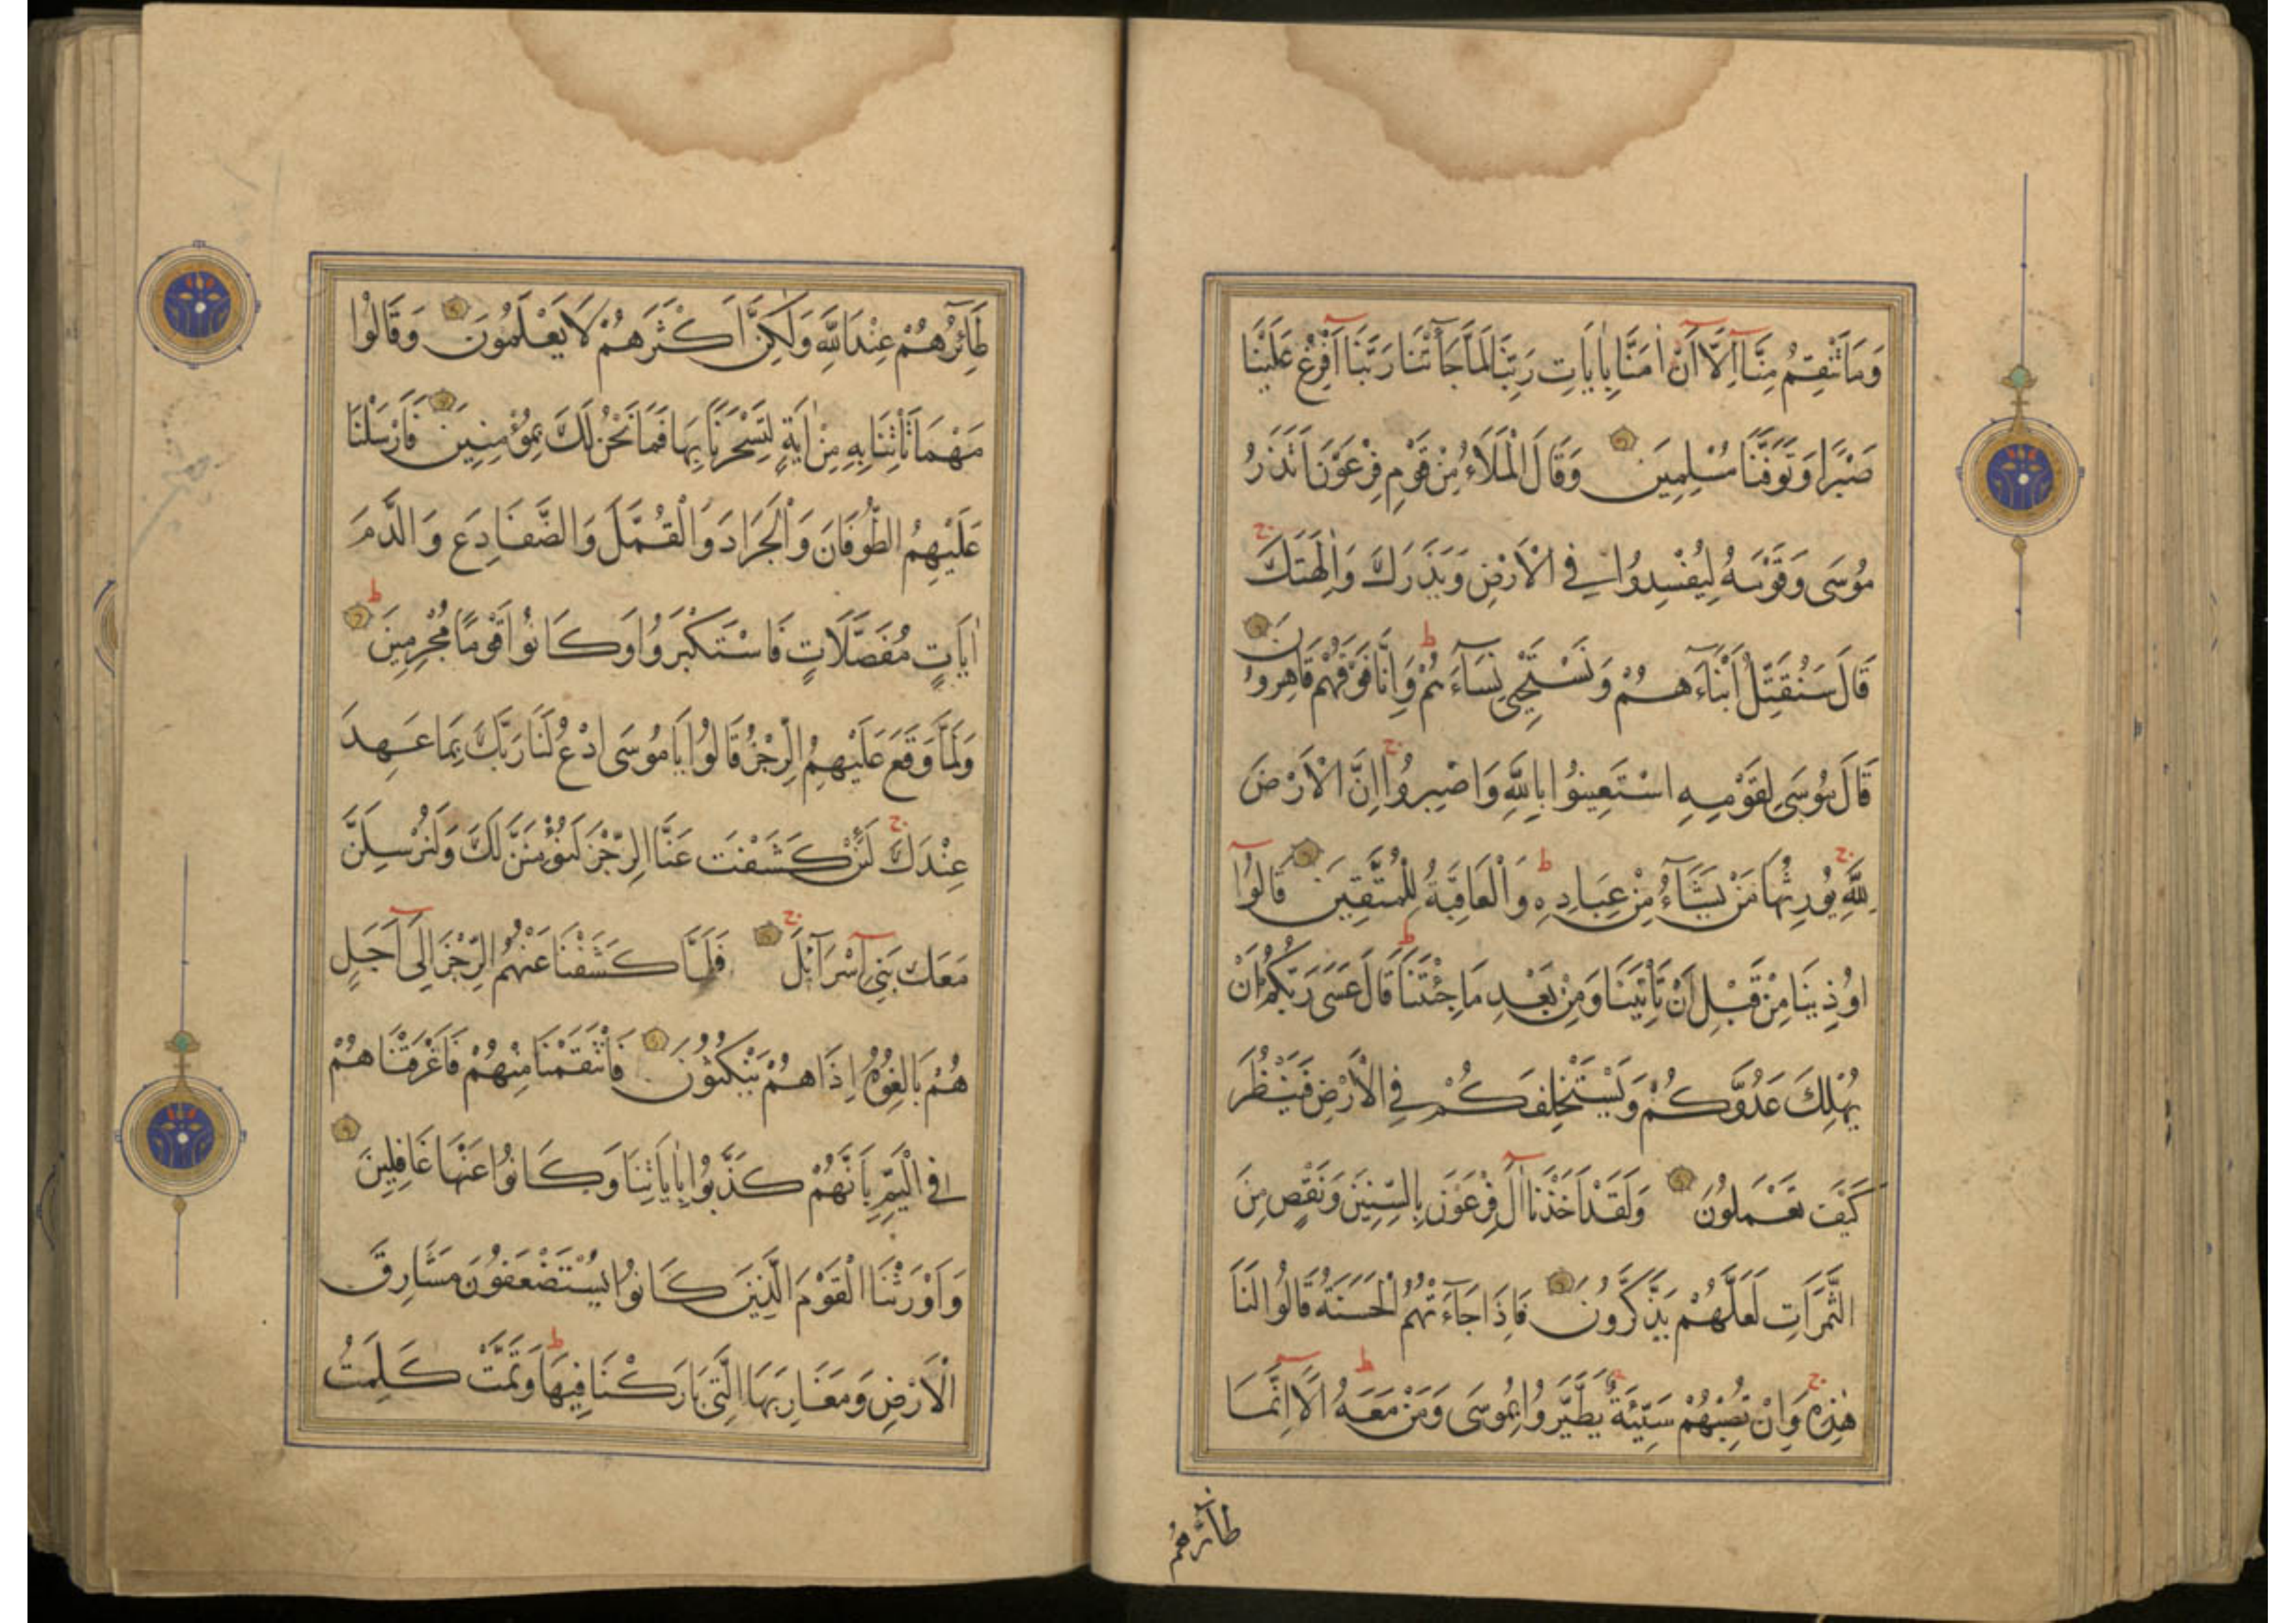 وَمَا تَنْقِمُ مِنَّا اِلَّا اَنْ اٰمَنَّا بِاٰيَاتِ رَبِّنَا لَمَّا جَاءَتْنَا رَبَّنَا اَفْرِغْ عَلَيْنَا
صَبْرًا وَتَوَفَّنَا مُسْلِمِينَ وَقَالَ الْمَلَاءُ مِنْ قَوْمِ فِرْعَوْنَ اَتَذَرُ
مُوسَى وَقَوْمَهُ لِيُفْسِدُوا فِي الْاَرْضِ وَيَذَرَكَ وَاٰلِهَتَكَ ج
قَالَ سَنُقَتِّلُ اَبْنَآءَهُمْ وَنَسْتَحْيِي نِسَآءَهُمْ ط وَاِنَّا فَوْقَهُمْ قَاهِرُونَ
قَالَ مُوسَى لِقَوْمِهِ اسْتَعِينُوا بِاللّٰهِ وَاصْبِرُوا ج اِنَّ الْاَرْضَ
لِلّٰهِ ج يُورِثُهَا مَنْ يَشَآءُ مِنْ عِبَادِهِ ط وَالْعَاقِبَةُ لِلْمُتَّقِينَ قَالُوٓا
اُوذِينَا مِنْ قَبْلِ اَنْ تَأْتِيَنَا وَمِنْ بَعْدِ مَا جِئْتَنَا ط قَالَ عَسَى رَبُّكُمْ اَنْ
يُهْلِكَ عَدُوَّكُمْ وَيَسْتَخْلِفَكُمْ فِي الْاَرْضِ فَيَنْظُرَ
كَيْفَ تَعْمَلُونَ وَلَقَدْ اَخَذْنَا اٰلَ فِرْعَوْنَ بِالسِّنِينَ وَنَقْصٍ مِنَ
الثَّمَرَاتِ لَعَلَّهُمْ يَذَّكَّرُونَ فَاِذَا جَآءَتْهُمُ الْحَسَنَةُ قَالُوا لَنَا
هٰذِهِ ج وَاِنْ تُصِبْهُمْ سَيِّئَةٌ يَطَّيَّرُوا بِمُوسَى وَمَنْ مَعَهُ ط اَلَا اِنَّمَا
طَآئِرُهُمْ
طَآئِرُهُمْ عِنْدَ اللّٰهِ وَلٰكِنَّ اَكْثَرَهُمْ لَا يَعْلَمُونَ وَقَالُوا
مَهْمَا تَأْتِنَا بِهِ مِنْ اٰيَةٍ لِتَسْحَرَنَا بِهَا فَمَا نَحْنُ لَكَ بِمُؤْمِنِينَ فَاَرْسَلْنَا
عَلَيْهِمُ الطُّوفَانَ وَالْجَرَادَ وَالْقُمَّلَ وَالضَّفَادِعَ وَالدَّمَ
اٰيَاتٍ مُفَصَّلَاتٍ فَاسْتَكْبَرُوا وَكَانُوا قَوْمًا مُجْرِمِينَ ط
وَلَمَّا وَقَعَ عَلَيْهِمُ الرِّجْزُ قَالُوا يَا مُوسَى ادْعُ لَنَا رَبَّكَ بِمَا عَهِدَ
عِنْدَكَ ج لَئِنْ كَشَفْتَ عَنَّا الرِّجْزَ لَنُؤْمِنَنَّ لَكَ وَلَنُرْسِلَنَّ
مَعَكَ بَنِي اِسْرَآئِلَ ج فَلَمَّا كَشَفْنَا عَنْهُمُ الرِّجْزَ اِلَى اَجَلٍ
هُمْ بَالِغُوهُ اِذَا هُمْ يَنْكُثُونَ فَانْتَقَمْنَا مِنْهُمْ فَاَغْرَقْنَاهُمْ
فِي الْيَمِّ بِاَنَّهُمْ كَذَّبُوا بِاٰيَاتِنَا وَكَانُوا عَنْهَا غَافِلِينَ
وَاَوْرَثْنَا الْقَوْمَ الَّذِينَ كَانُوا يُسْتَضْعَفُونَ مَشَارِقَ
الْاَرْضِ وَمَغَارِبَهَا الَّتِي بَارَكْنَا فِيهَا ط وَتَمَّتْ كَلِمَتُ